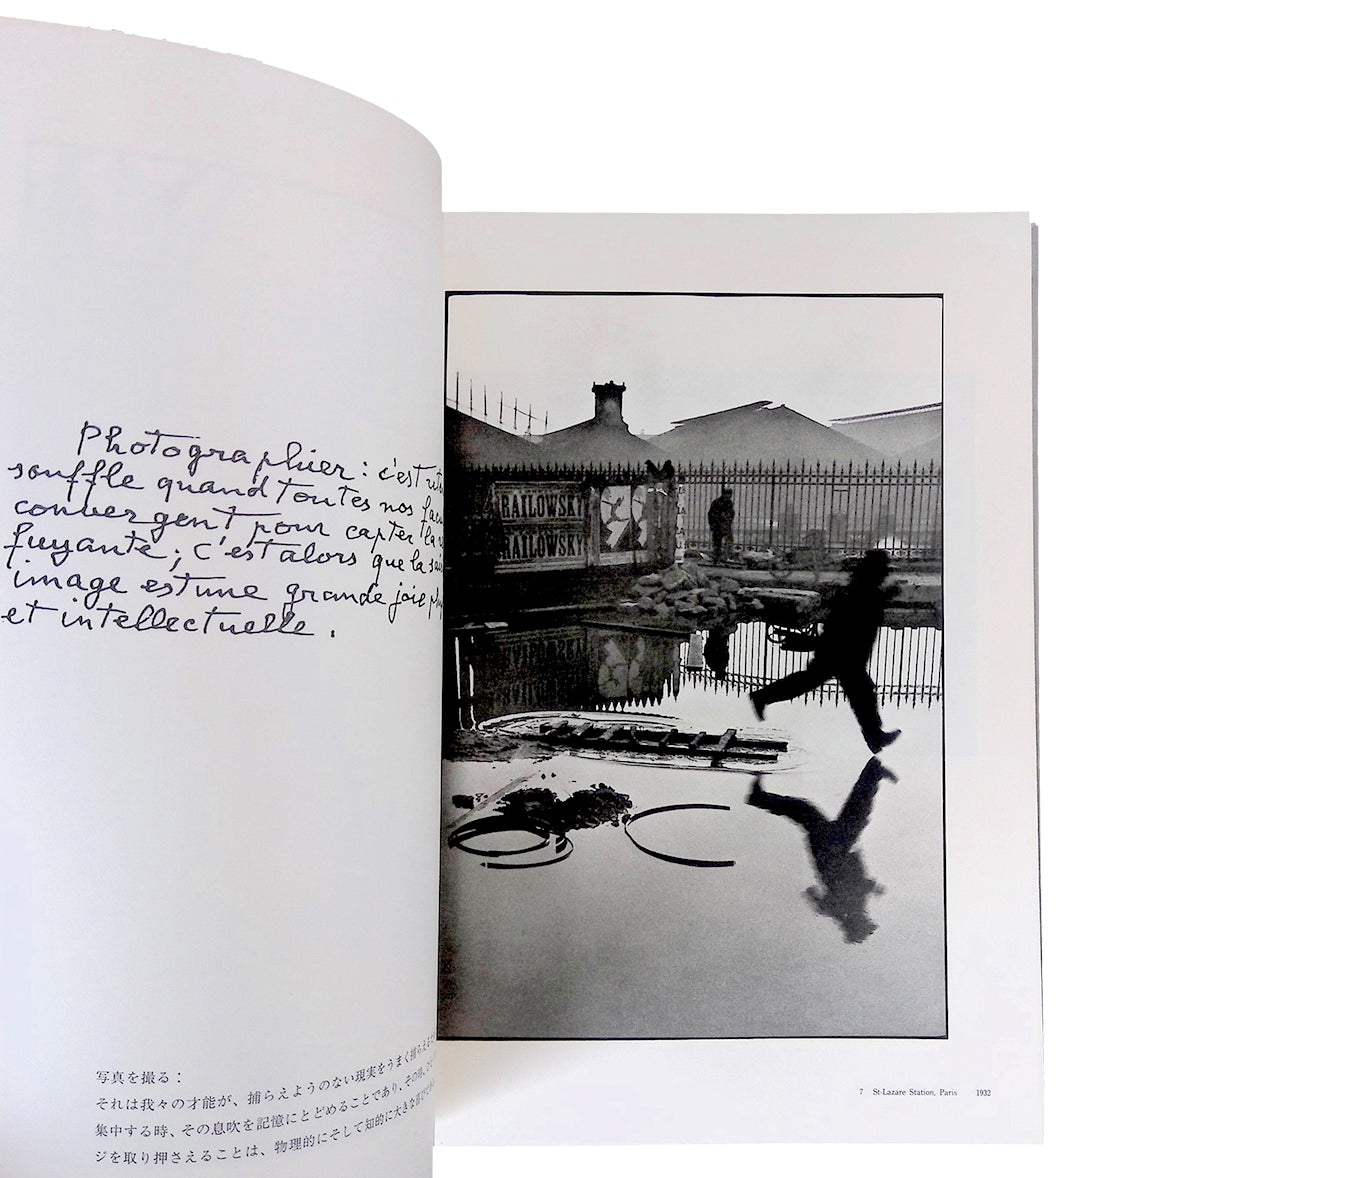 Photographier : c'est
souffle quand toutes nos
convergent pour capter la
fuyante ; c'est alors que la
image est une grande joie
et intellectuelle.
写真を撮る：
それは我々の才能が、捕らえようのない現実をうまく捕らえる
集中する時、その息吹を記憶にとどめることであり、その時、
ジを取り押さえることは、物理的にそして知的に大きな喜び
RAILOWSKY
RAILOWSKY
7 St-Lazare Station, Paris 1932